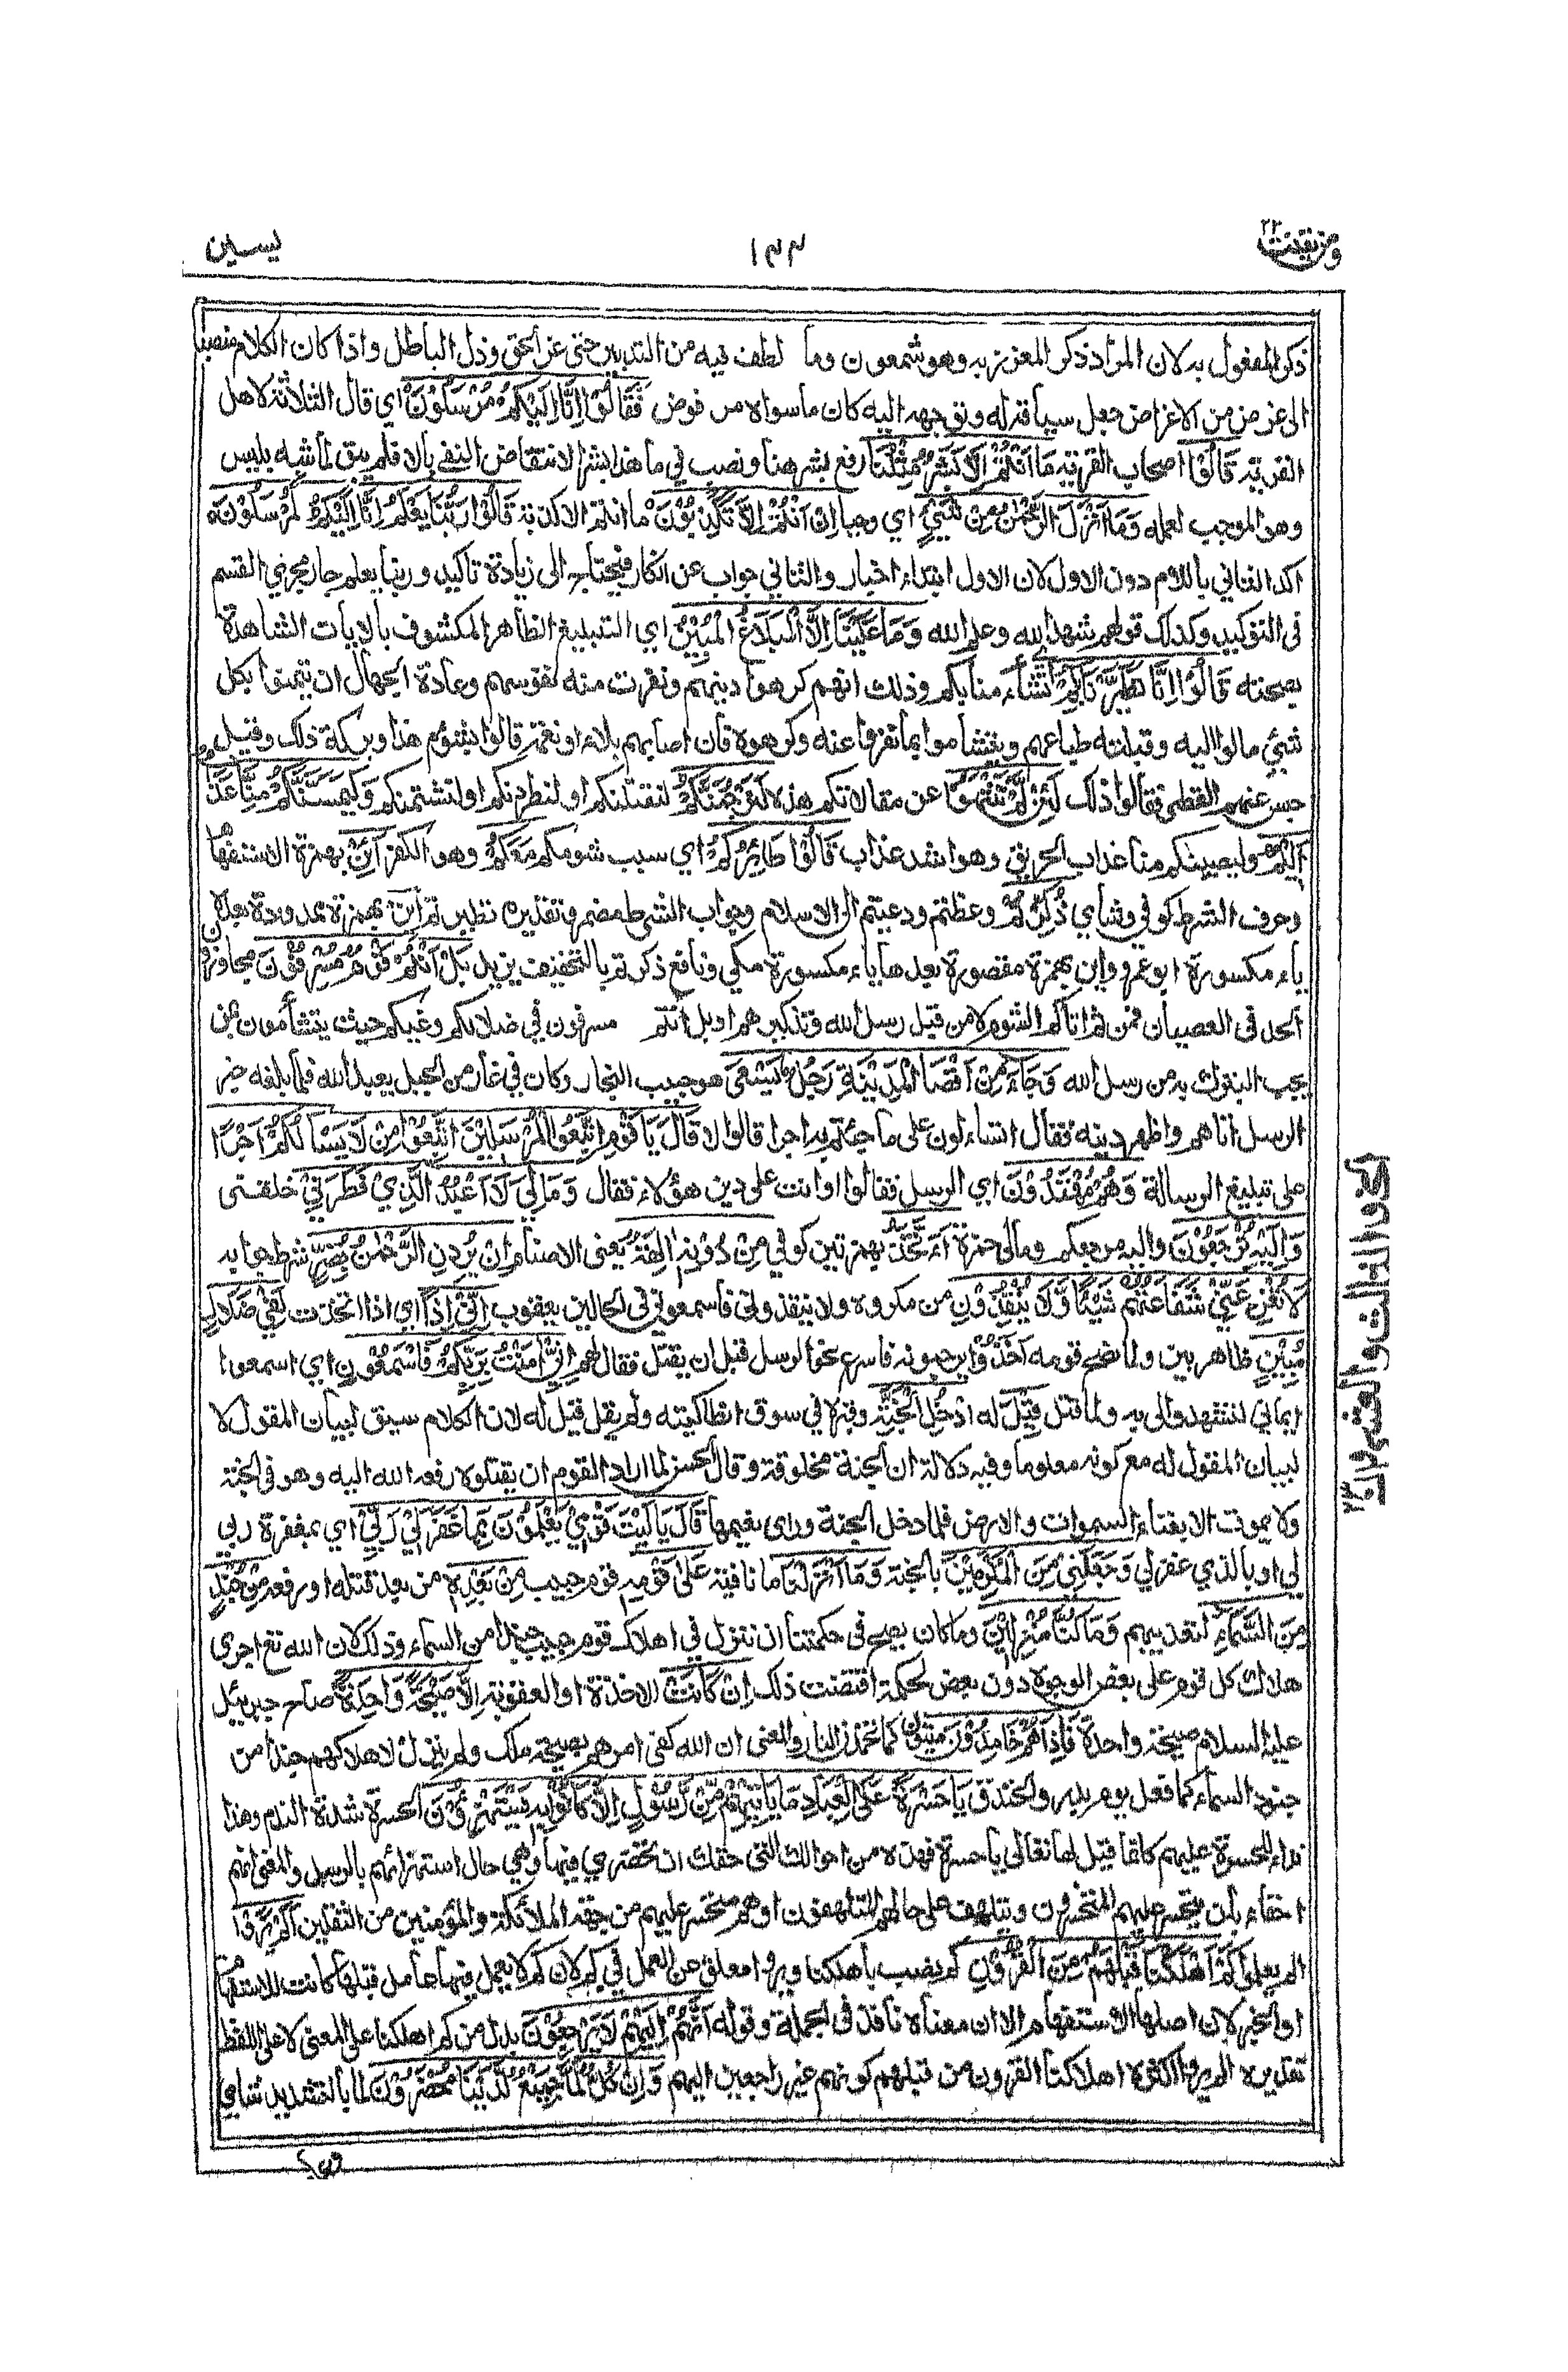 ومن يقنت ٢٢
١٣٣
يسين
ذكر المفعول به لان المراد ذكر المعزز به وهو شمعون وما لطف فيه من التدبير حتى عز الحق وذل الباطل واذا كان الكلام منصبا
الى غرض من الاغراض جعل سياقه له وتوجهه اليه كان ما سواه مرفوض فَقَالُوْا اِنَّا اِلَيْكُمْ مُرْسَلُوْنَ اي قال الثلاثة لاهل
القرية قَالُوْا اصحاب القرية مَا اَنْتُمْ اِلَّا بَشَرٌ مِثْلُنَا رفع بشر هنا ونصب في ما هذا بشرا لانتقاض النفي بالا فلم يبق لما شبه بليس
وهو الموجب لعمله وَمَا اَنْزَلَ الرَّحْمٰنُ مِنْ شَيْءٍ اي وحيا اِنْ اَنْتُمْ اِلَّا تَكْذِبُوْنَ ما انتم الا كذبة قَالُوْا رَبُّنَا يَعْلَمُ اِنَّا اِلَيْكُمْ لَمُرْسَلُوْنَ
اكد الثاني باللام دون الاول لان الاول ابتداء اخبار والثاني جواب عن انكار فيحتاج الى زيادة تاكيد وربنا يعلم جار مجرى القسم
فى التوكيد وكذلك قولهم شهد الله وعلم الله وَمَا عَلَيْنَا اِلَّا الْبَلَاغُ الْمُبِيْنُ اي التبليغ الظاهر المكشوف بالايات الشاهدة
بصحته قَالُوْا اِنَّا تَطَيَّرْنَا بِكُمْ تشاءمنا بكم وذلك انهم كرهوا دينهم ونفرت منه نفوسهم وعادة الجهال ان يتيمنوا بكل
شيئ مالوا اليه وقبلته طباعهم ويتشاموا بما نفروا عنه وكرهوه فان اصابهم بلاء او نعمة قالوا بشوم هذا وبركة ذلك وقيل
حبس عنهم القطر فقالوا ذلك لَئِنْ لَمْ تَنْتَهُوْا عن مقالاتكم هذه لَنَرْجُمَنَّكُمْ لنقتلنكم او لنطردنكم او لنشتمنكم وَلَيَمَسَّنَّكُمْ مِنَّا عَذَابٌ
اَلِيْمٌ وليصيبنكم منا عذاب الحريق وهو اشد عذاب قَالُوْا طَائِرُكُمْ اي سبب شومكم مَعَكُمْ وهو الكفر اَئِنْ بهمزة الاستفهام
وحرف الشرط كوفي وشامي ذُكِّرْتُمْ وعظتم ودعيتم الى الاسلام وجواب الشرط مضمر وتقديره تطيرتم آين بهمزة ممدودة بعدها
ياء مكسورة ابو عمرو واين بهمزة مقصورة بعدها ياء مكسورة مكي ونافع ذكرتم بالتخفيف يزيد بَلْ اَنْتُمْ قَوْمٌ مُسْرِفُوْنَ مجاوزون
الحد فى العصيان فمن ثم اتاكم الشوم لا من قبل رسل الله وتذكيرهم او بل انتم مسرفون في ضلالكم وغيكم حيث يتشأمون بمن
يجب التبرك به من رسل الله وَجَاءَ مِنْ اَقْصَا الْمَدِيْنَةِ رَجُلٌ يَسْعٰى هو حبيب النجار وكان في غار من الجبل يعبد الله فلما بلغه خبر
الرسل اتاهم واظهر دينه فقال اتسئلون على ما جئتم به اجرا قالوا لا قَالَ يَا قَوْمِ اتَّبِعُوا الْمُرْسَلِيْنَ اتَّبِعُوْا مَنْ لَا يَسْأَلُكُمْ اَجْرًا
على تبليغ الرسالة وَهُمْ مُهْتَدُوْنَ اي الرسل فقالوا اوانت على دين هؤلاء فقال وَمَا لِيَ لَا اَعْبُدُ الَّذِيْ فَطَرَنِيْ خلقنى
وَاِلَيْهِ تُرْجَعُوْنَ واليه مرجعكم ومالى حمزة اَاَتَّخِذُ بهمزتين كوفي مِنْ دُوْنِهٖ اٰلِهَةً يعنى الاصنام اِنْ يُرِدْنِ الرَّحْمٰنُ بِضُرٍّ شرط جوابه
لَا تُغْنِ عَنِّيْ شَفَاعَتُهُمْ شَيْئًا وَّلَا يُنْقِذُوْنِ من مكروه ولا ينقذوني فاسمعوني فى الحالين يعقوب اِنِّيْ اِذًا اي اذا اتخذت لَفِيْ ضَلَالٍ
مُبِيْنٍ ظاهر بين ولما نصح قومه اخذوا يرجمونه فاسرع نحو الرسل قبل ان يقتل فقال لهم اِنِّيْ اٰمَنْتُ بِرَبِّكُمْ فَاسْمَعُوْنِ اي اسمعوا
ايماني لتشهدوا لى به ولما قتل قِيْلَ له ادْخُلِ الْجَنَّةَ وقبره في سوق انطاكية ولم يقل قيل له لان الكلام سيق لبيان المقول لا
لبيان المقول له مع كونه معلوما وفيه دلالة ان الجنة مخلوقة وقال الحسن لما اراد القوم ان يقتلوه رفعه الله اليه وهو فى الجنة
ولا يموت الا بفناء السموات والارض فلما دخل الجنة وراى نعيمها قَالَ يَا لَيْتَ قَوْمِيْ يَعْلَمُوْنَ بِمَا غَفَرَ لِيْ رَبِّيْ اي بمغفرة ربي
لي او بالذي غفر لي وَجَعَلَنِيْ مِنَ الْمُكْرَمِيْنَ بالجنة وَمَا اَنْزَلْنَا ما نافية عَلٰى قَوْمِهٖ قوم حبيب مِنْ بَعْدِهٖ من بعد قتله او رفعه مِنْ جُنْدٍ
مِنَ السَّمَاءِ لتعذيبهم وَمَا كُنَّا مُنْزِلِيْنَ وما كان يصح فى حكمتنا ان ننزل في اهلاك قوم حبيب جندا من السماء وذلك لان الله تع اجرى
هلاك كل قوم على بعض الوجوه دون بعض لحكمة اقتضت ذلك اِنْ كَانَتْ الاخذة او العقوبة اِلَّا صَيْحَةً وَاحِدَةً صاح جبرئيل
عليه السلام صيحة واحدة فَاِذَا هُمْ خَامِدُوْنَ ميتون كما تخمد النار والمعنى ان الله كفى امرهم بصيحة ملك ولم ينزل لاهلاكهم جندا من
جنود السماء كما فعل يوم بدر والخندق يَا حَسْرَةً عَلَى الْعِبَادِ مَا يَاْتِيْهِمْ مِنْ رَسُوْلٍ اِلَّا كَانُوْا بِهٖ يَسْتَهْزِءُوْنَ الحسرة شدة الندم وهذا
نداء للحسرة عليهم كانما قيل لها تعالي يا حسرة فهذه من احوالك التى حقك ان تحضري فيها وهي حال استهزائهم بالرسل والمعنى انهم
احقاء بان يتحسر عليهم المتحسرون ويتلهف على حالهم المتلهفون او هم متحسر عليهم من جهة الملائكة والمؤمنين من الثقلين اَلَمْ يَرَوْا
الم يعلموا كَمْ اَهْلَكْنَا قَبْلَهُمْ مِنَ الْقُرُوْنِ كم نصب باهلكنا ويروا معلق عن العمل في كم لان كم لا يعمل فيها عامل قبلها كانت للاستفهام
او الخبر لان اصلها الاستفهام الا ان معناه نافذ فى الجملة وقوله اَنَّهُمْ اِلَيْهِمْ لَا يَرْجِعُوْنَ بدل من كم اهلكنا على المعنى لا على اللفظ
تقديره الم يروا كثرة اهلاكنا القرون من قبلهم كونهم غير راجعين اليهم وَاِنْ كُلٌّ لَمَّا جَمِيْعٌ لَدَيْنَا مُحْضَرُوْنَ لما بالتشديد شامي
الجزو الثالث والعشرون ٢٣